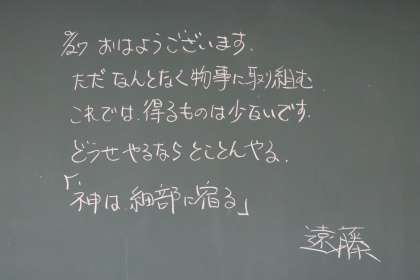 9/27 おはようございます.
ただなんとなく物事に取り組む
これでは.得るものは少ないです.
どうせやるならとことんやる.
「神は細部に宿る」
遠藤